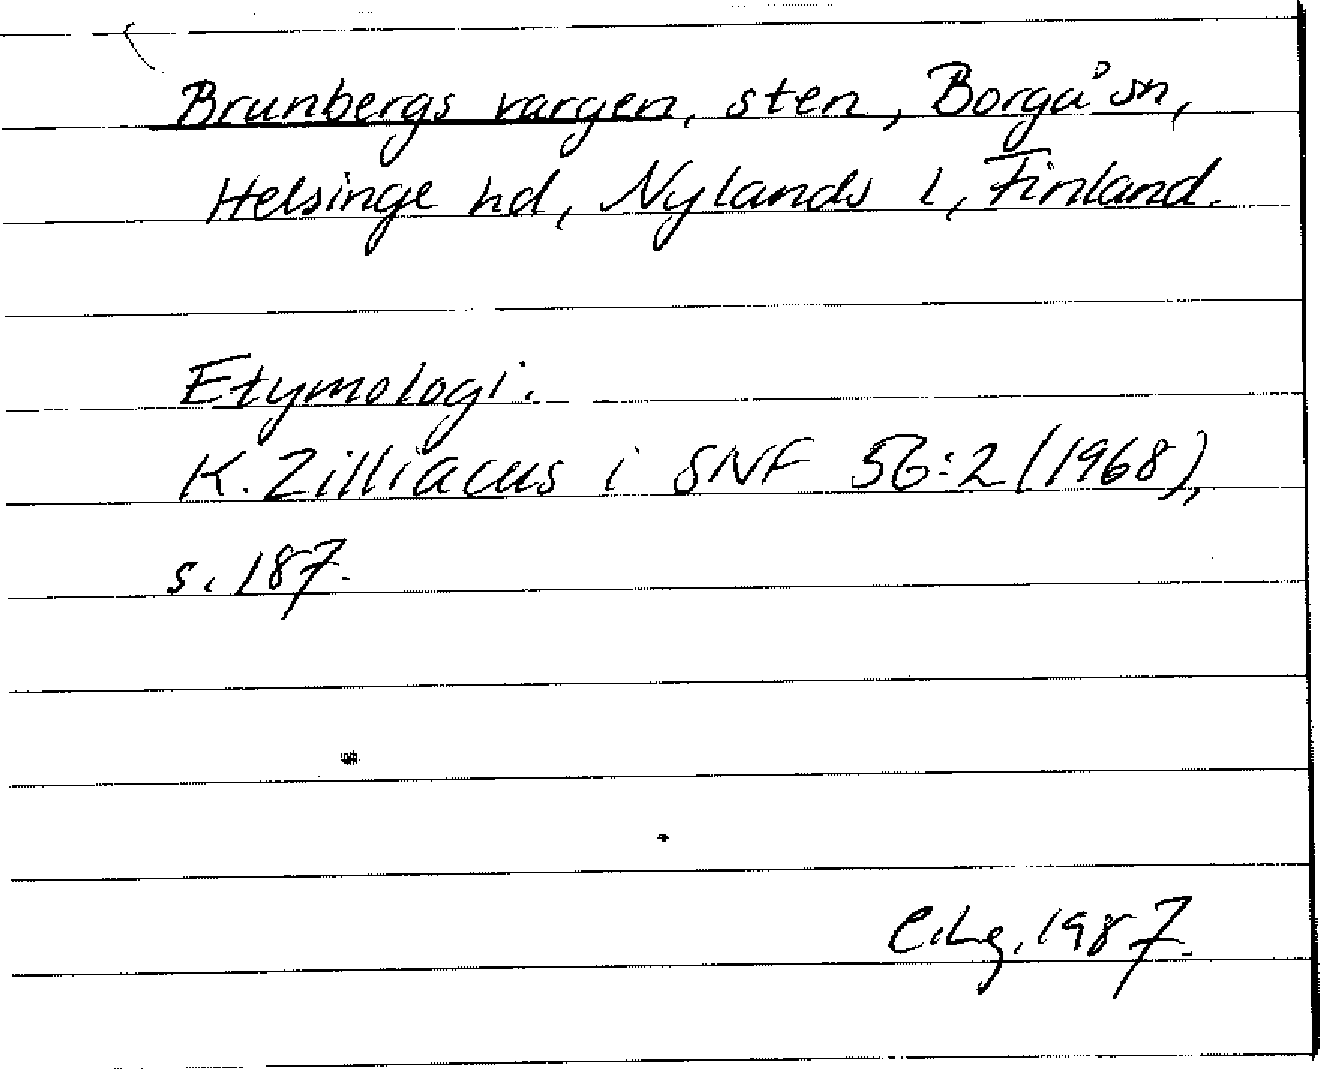 Brunbergs vargen, sten, Borgå sn,
Helsinge hd, Nylands l, Finland.
Etymologi.
K. Zilliacus i SNF 56:2 (1968),
s. 187.
C.Lg, 1987.